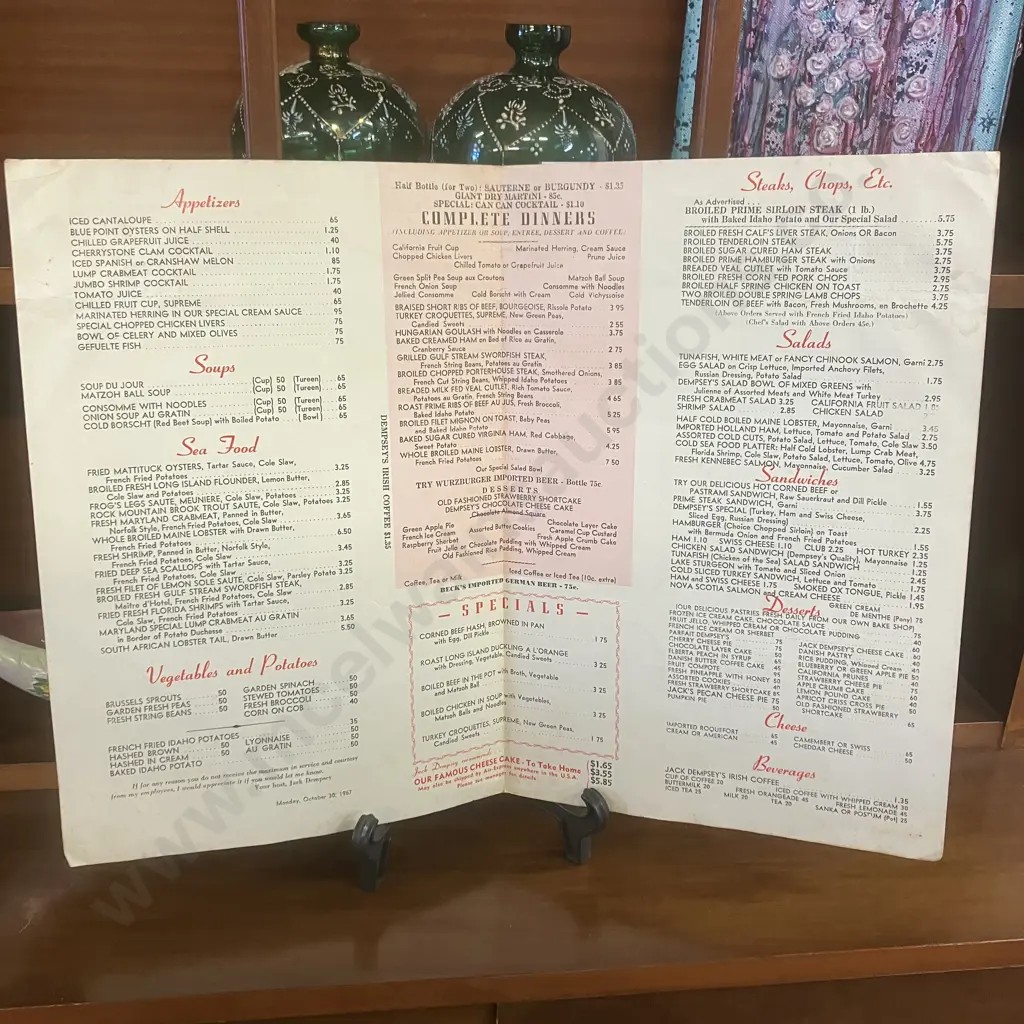 Appetizers
ICED CANTALOUPE 65
BLUE POINT OYSTERS ON HALF SHELL 1.25
CHILLED GRAPEFRUIT JUICE 40
CHERRYSTONE CLAM COCKTAIL 1.10
ICED SPANISH or CRANSHAW MELON 85
LUMP CRABMEAT COCKTAIL 1.75
JUMBO SHRIMP COCKTAIL 1.75
TOMATO JUICE 40
CHILLED FRUIT CUP, SUPREME 65
MARINATED HERRING IN OUR SPECIAL CREAM SAUCE 95
SPECIAL CHOPPED CHICKEN LIVERS 75
BOWL OF CELERY AND MIXED OLIVES 75
GEFUELTE FISH 75
Soups
SOUP DU JOUR (Cup) 50 (Tureen) 65
MATZOH BALL SOUP
CONSOMME WITH NOODLES (Cup) 50 (Tureen) 65
ONION SOUP AU GRATIN (Cup) 50 (Tureen) 65
COLD BORSCHT (Red Beet Soup) with Boiled Potato (Bowl) 65
Sea Food
FRIED MATTITUCK OYSTERS, Tartar Sauce, Cole Slaw,
French Fried Potatoes 3.25
BROILED FRESH LONG ISLAND FLOUNDER, Lemon Butter,
Cole Slaw and Potatoes 2.85
FROG'S LEGS SAUTE, MEUNIERE, Cole Slaw, Potatoes 3.25
ROCK MOUNTAIN BROOK TROUT SAUTE, Cole Slaw, Potatoes 3.25
FRESH MARYLAND CRABMEAT, Panned in Butter,
Norfolk Style, French Fried Potatoes, Cole Slaw 3.65
WHOLE BROILED MAINE LOBSTER with Drawn Butter,
French Fried Potatoes 6.50
FRESH SHRIMP, Panned in Butter, Norfolk Style,
French Fried Potatoes, Cole Slaw 3.45
FRIED DEEP SEA SCALLOPS with Tartar Sauce,
French Fried Potatoes, Cole Slaw 3.25
FRESH FILET OF LEMON SOLE SAUTE, Cole Slaw, Parsley Potato 3.25
BROILED FRESH GULF STREAM SWORDFISH STEAK,
Maitre d'Hotel, French Fried Potatoes, Cole Slaw 2.85
FRIED FRESH FLORIDA SHRIMPS with Tartar Sauce,
Cole Slaw, French Fried Potatoes 3.25
MARYLAND SPECIAL LUMP CRABMEAT AU GRATIN
in Border of Potato Duchesse 3.65
SOUTH AFRICAN LOBSTER TAIL, Drawn Butter 5.50
Vegetables and Potatoes
BRUSSELS SPROUTS 50 GARDEN SPINACH 50
GARDEN FRESH PEAS 50 STEWED TOMATOES 50
FRESH STRING BEANS 50 FRESH BROCCOLI 50
CORN ON COB 40
FRENCH FRIED IDAHO POTATOES 35
HASHED BROWN 50 LYONNAISE 50
HASHED IN CREAM 50 AU GRATIN 50
BAKED IDAHO POTATO 50
If for any reason you do not receive the maximum in service and courtesy
from my employees, I would appreciate it if you would let me know.
Your host, Jack Dempsey
Monday, October 30, 1967
DEMPSEY'S IRISH COFFEE $1.35
Half Bottle (for Two): SAUTERNE or BURGUNDY - $1.35
GIANT DRY MARTINI - 85c.
SPECIAL: CAN CAN COCKTAIL - $1.10
COMPLETE DINNERS
(INCLUDING APPETIZER OR SOUP, ENTREE, DESSERT AND COFFEE)
California Fruit Cup Marinated Herring, Cream Sauce
Chopped Chicken Livers Prune Juice
Chilled Tomato or Grapefruit Juice
Green Split Pea Soup aux Croutons Matzoh Ball Soup
French Onion Soup Consomme with Noodles
Jellied Consomme Cold Borscht with Cream Cold Vichyssoise
BRAISED SHORT RIBS OF BEEF, BOURGEOISE, Rissole Potato 3 95
TURKEY CROQUETTES, SUPREME, New Green Peas,
Candied Sweets 2 55
HUNGARIAN GOULASH with Noodles en Casserole 3.75
BAKED CREAMED HAM on Bed of Rice au Gratin,
Cranberry Sauce 2 75
GRILLED GULF STREAM SWORDFISH STEAK,
French Beans, Potatoes au Gratin 3 85
BROILED CHOPPED PORTERHOUSE STEAK, Smothered Onions,
French Cut String Beans, Whipped Idaho Potatoes 3 85
BREADED MILK FED VEAL CUTLET, Rich Tomato Sauce,
Potatoes au Gratin, French String Beans 4 65
ROAST PRIME RIBS OF BEEF AU JUS, Fresh Broccoli,
Baked Idaho Potato 5 25
BROILED FILET MIGNON ON TOAST, Baby Peas
and Baked Idaho Potato 5 95
BAKED SUGAR CURED VIRGINIA HAM, Red Cabbage,
Sweet Potato 4.25
WHOLE BROILED MAINE LOBSTER, Drawn Butter,
French Fried Potatoes 7 50
Our Special Salad Bowl
TRY WURZBURGER IMPORTED BEER - Bottle 75c.
DESSERTS
OLD FASHIONED STRAWBERRY SHORTCAKE
DEMPSEY'S CHOCOLATE CHEESE CAKE
Chocolate Almond Square
Green Apple Pie Chocolate Layer Cake
French Ice Cream Assorted Butter Cookies Caramel Cup Custard
Raspberry Sherbet Fresh Apple Crumb Cake
Fruit Jello or Chocolate Pudding with Whipped Cream
Old Fashioned Rice Pudding, Whipped Cream
Coffee, Tea or Milk Iced Coffee or Iced Tea (10c. extra)
BECK'S IMPORTED GERMAN BEER - 75c.
SPECIALS
CORNED BEEF HASH, BROWNED IN PAN
with Egg, Dill Pickle 1 75
ROAST LONG ISLAND DUCKLING A L'ORANGE
with Dressing, Vegetable, Candied Sweets 3 25
BOILED BEEF IN THE POT with Broth, Vegetable
and Matzoh Ball 3 25
BOILED CHICKEN IN SOUP with Vegetables,
Matzoh Balls and Noodles 3 25
TURKEY CROQUETTES, SUPREME, New Green Peas,
Candied Sweets 1 75
Jack Dempsey recommends
OUR FAMOUS CHEESE CAKE - To Take Home $1.65
May also be shipped by Air-Express anywhere in the U.S.A. $3.55
Please see manager for details $5.85
Steaks, Chops, Etc.
As Advertised . . .
BROILED PRIME SIRLOIN STEAK (1 lb.)
with Baked Idaho Potato and Our Special Salad 5.75
BROILED FRESH CALF'S LIVER STEAK, Onions OR Bacon 3.75
BROILED TENDERLOIN STEAK 5.75
BROILED SUGAR CURED HAM STEAK 3.75
BROILED PRIME HAMBURGER STEAK with Onions 2.75
BREADED VEAL CUTLET with Tomato Sauce 3.75
BROILED FRESH CORN FED PORK CHOPS 2.95
BROILED HALF SPRING CHICKEN ON TOAST 2.75
TWO BROILED DOUBLE SPRING LAMB CHOPS 3.75
TENDERLOIN OF BEEF with Bacon, Fresh Mushrooms, en Brochette 4.25
(Above Orders Served with French Fried Idaho Potatoes)
(Chef's Salad with Above Orders 45c.)
Salads
TUNAFISH, WHITE MEAT or FANCY CHINOOK SALMON, Garni 2.75
EGG SALAD on Crisp Lettuce, Imported Anchovy Filets,
Russian Dressing, Potato Salad 1.75
DEMPSEY'S SALAD BOWL OF MIXED GREENS with
Julienne of Assorted Meats and White Meat Turkey 2.95
FRESH CRABMEAT SALAD 3.25 CALIFORNIA FRUIT SALAD
SHRIMP SALAD 2.85 CHICKEN SALAD
HALF COLD BOILED MAINE LOBSTER, Mayonnaise, Garni 3.45
IMPORTED HOLLAND HAM, Lettuce, Tomato and Potato Salad 2.75
ASSORTED COLD CUTS, Potato Salad, Lettuce, Tomato, Cole Slaw 3.50
COLD SEA FOOD PLATTER: Half Cold Lobster, Lump Crab Meat,
Florida Shrimp, Cole Slaw, Potato Salad, Lettuce, Tomato, Olive 4.75
FRESH KENNEBEC SALMON, Mayonnaise, Cucumber Salad 3.25
Sandwiches
TRY OUR DELICIOUS HOT CORNED BEEF or
PASTRAMI SANDWICH, Raw Sauerkraut and Dill Pickle 1.55
PRIME STEAK SANDWICH, Garni 3.75
DEMPSEY'S SPECIAL (Turkey, Ham and Swiss Cheese,
Sliced Egg, Russian Dressing) 2.25
HAMBURGER (Choice Chopped Sirloin) on Toast
with Bermuda Onion and French Fried Potatoes 1.55
HAM 1.10 SWISS CHEESE 1.10 CLUB 2.25 HOT TURKEY 2.35
CHICKEN SALAD SANDWICH (Dempsey's Quality), Mayonnaise 1.25
TUNAFISH (Chicken of the Sea) SALAD SANDWICH 1.25
LAKE STURGEON with Tomato and Sliced Onion 2.45
COLD SLICED TURKEY SANDWICH, Lettuce and Tomato 1.75
HAM and SWISS CHEESE 1.75 SMOKED OX TONGUE, Pickle 1.45
NOVA SCOTIA SALMON and CREAM CHEESE 1.95
Desserts
(OUR DELICIOUS PASTRIES FRESH DAILY FROM OUR OWN BAKE SHOP)
FROZEN ICE CREAM CAKE, CHOCOLATE SAUCE GREEN CREAM DE MENTHE (Pony) 75
FRUIT JELLO, WHIPPED CREAM OR CHOCOLATE PUDDING 40
FRENCH ICE CREAM OR SHERBET
PARFAIT DEMPSEY'S 75 JACK DEMPSEY'S CHEESE CAKE 60
CHERRY CHEESE PIE 75 DANISH PASTRY 40
CHOCOLATE LAYER CAKE 50 RICE PUDDING, Whipped Cream 40
ELBERTA PEACH IN SYRUP 50 BLUEBERRY OR GREEN APPLE PIE 50
DANISH BUTTER COFFEE CAKE 45 CALIFORNIA PRUNES
FRUIT COMPOTE STRAWBERRY CHEESE PIE
FRESH PINEAPPLE WITH HONEY 50 APPLE CRUMB CAKE
ASSORTED COOKIES 40 LEMON POUND CAKE
FRESH STRAWBERRY SHORTCAKE 85 APRICOT CRISS CROSS PIE
JACK'S PECAN CHEESE PIE 75 OLD FASHIONED STRAWBERRY
PUMPKIN PIE 50 SHORTCAKE 65
Cheese
IMPORTED ROQUEFORT 65 CAMEMBERT OR SWISS 65
CREAM OR AMERICAN 45 CHEDDAR CHEESE 50
Beverages
JACK DEMPSEY'S IRISH COFFEE 1.35
CUP OF COFFEE 20 ICED COFFEE WITH WHIPPED CREAM 30
BUTTERMILK 20 FRESH ORANGEADE 45 FRESH LEMONADE 45
ICED TEA 25 MILK 20 TEA 20 SANKA OR POSTUM (Pot) 25